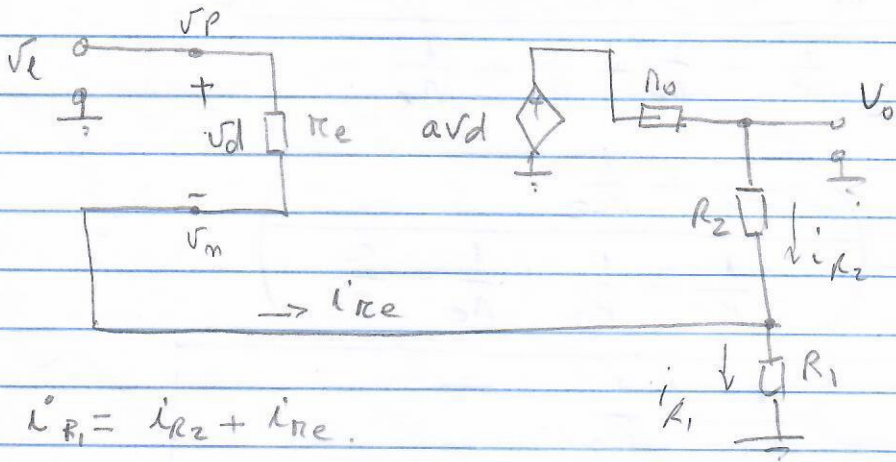 vp
ve
+
vd
re
-
vn
avd
ro
Vo
R2
iR2
→ ire
iR1
R1
iR1 = iR2 + ire.